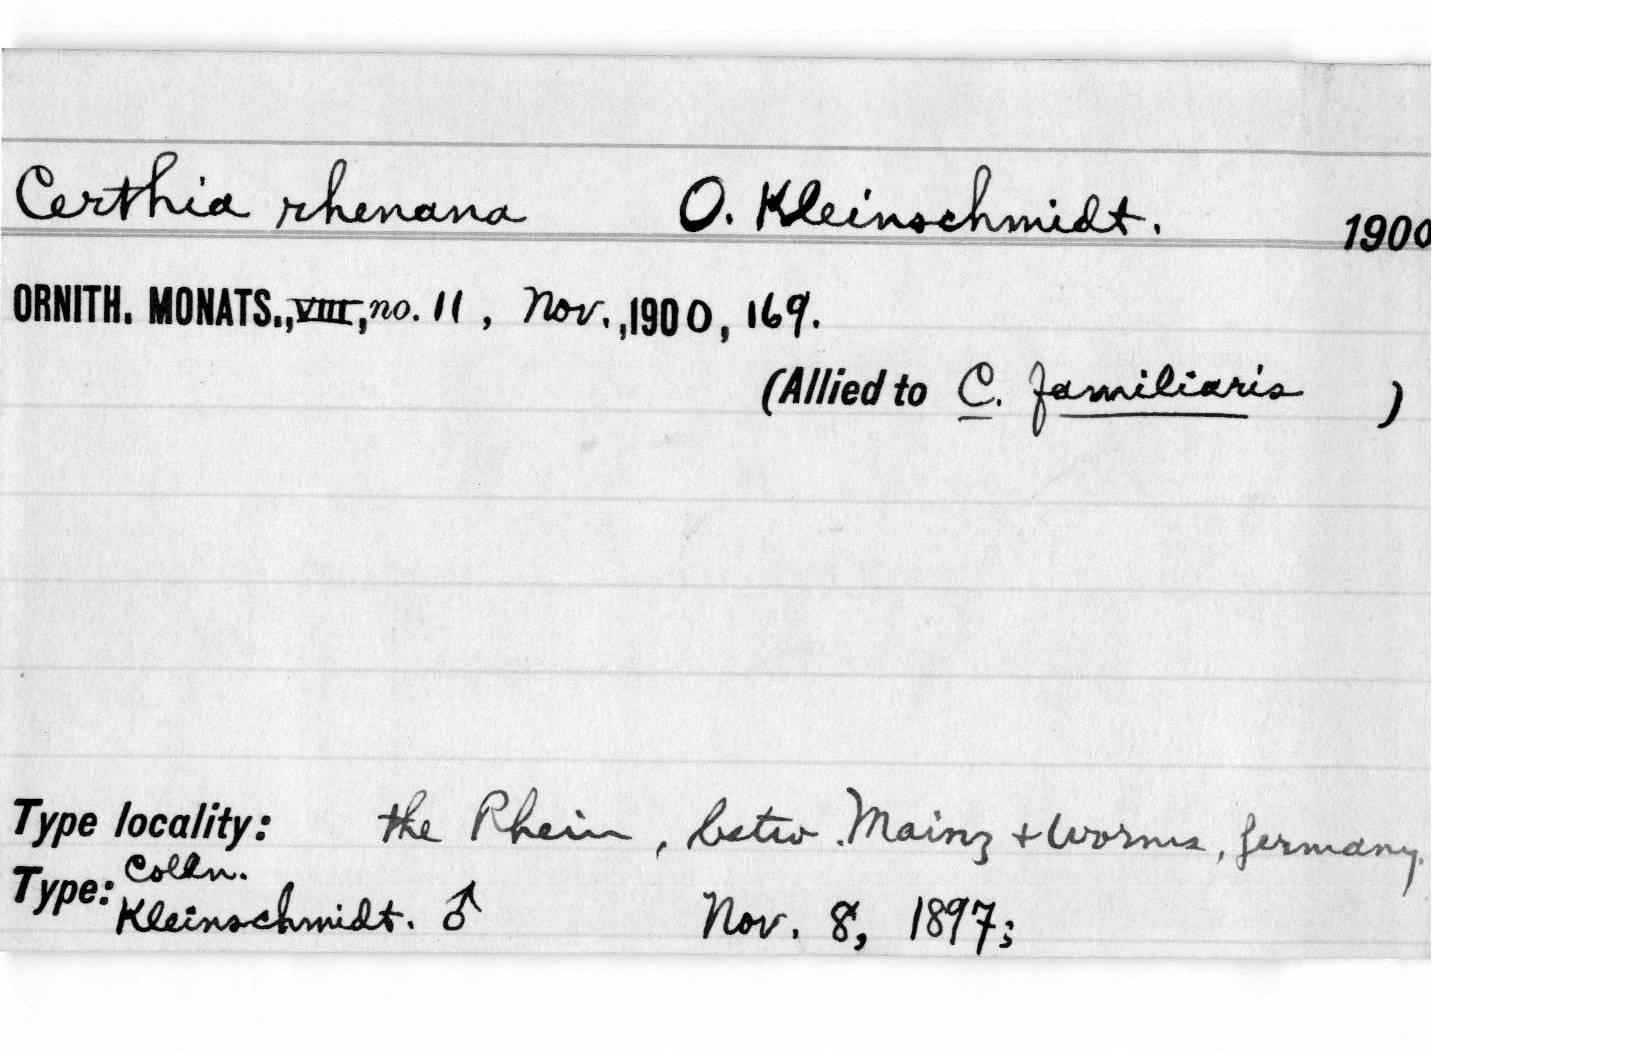 Certhia rhenana O. Kleinschmidt. 1900
ORNITH. MONATS., VIII, no. 11, Nov., 1900, 169.
(Allied to C. familiaris )
Type locality: the Rhein, betw. Mainz + Worms, Germany.
Type: Colln.
Kleinschmidt. ♂ Nov. 8, 1897;